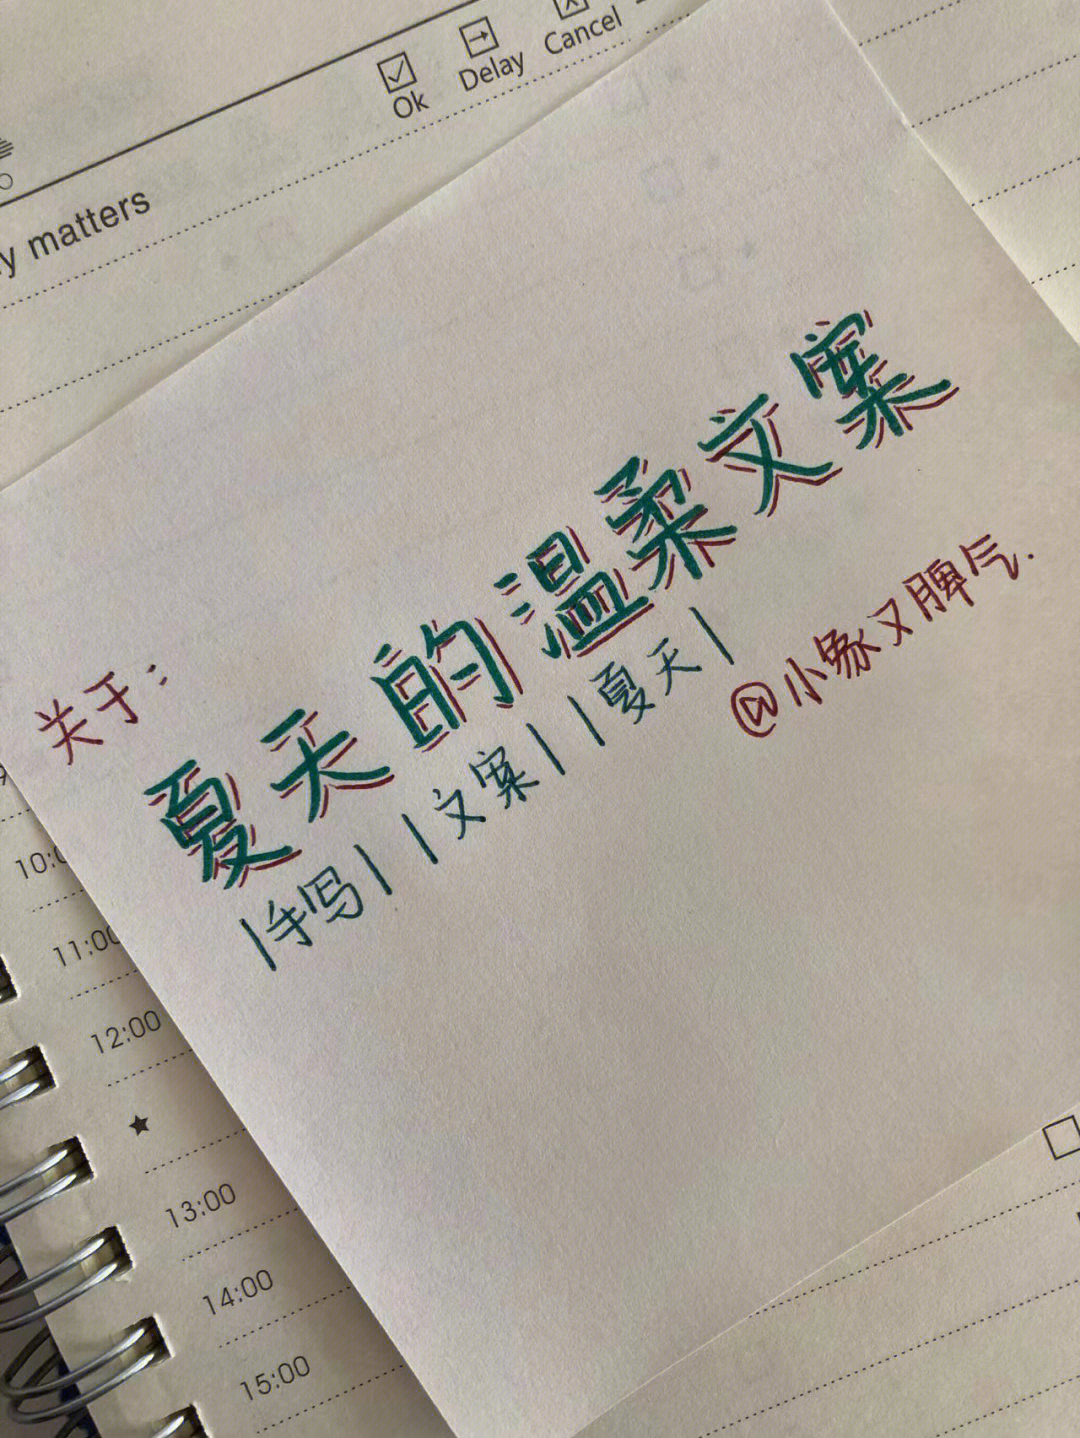 Ok Delay Cancel
y matters
关于：
夏天的温柔文案
|手写| |文案| |夏天|
@小象又脾气.
10:0
11:00
12:00
13:00
14:00
15:00